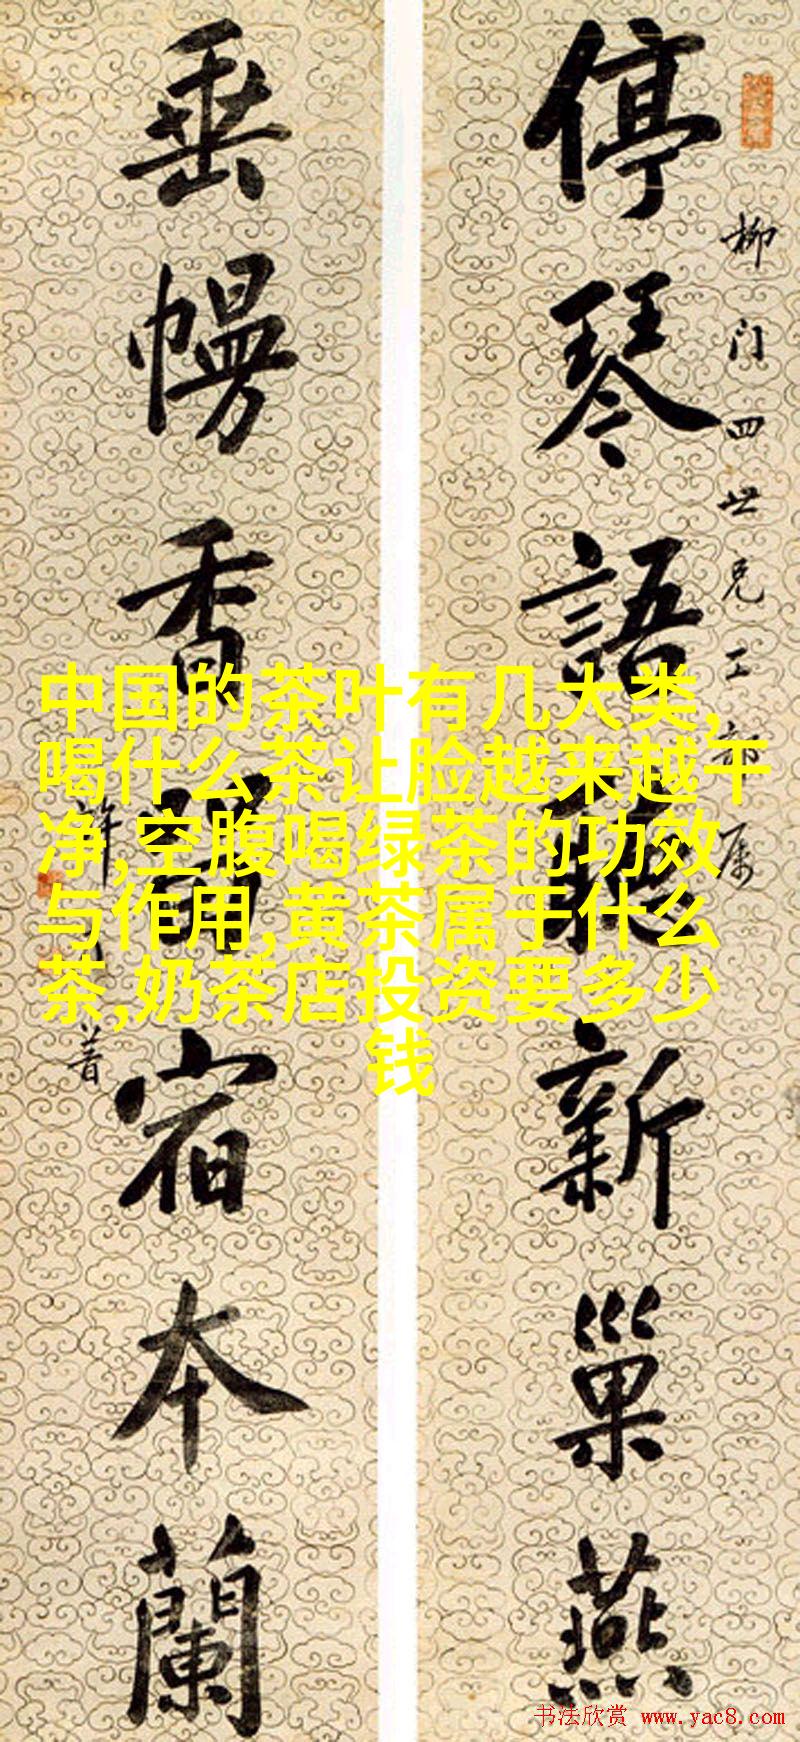 停琴語聽新巢燕
柳门四世兄工部属
垂幔香留宿本蘭
许
着
中国的茶叶有几大类,
喝什么茶让脸越来越干
净,空腹喝绿茶的功效
与作用,黄茶属于什么
茶,奶茶店投资要多少
钱
书法欣赏 www.yac8.com